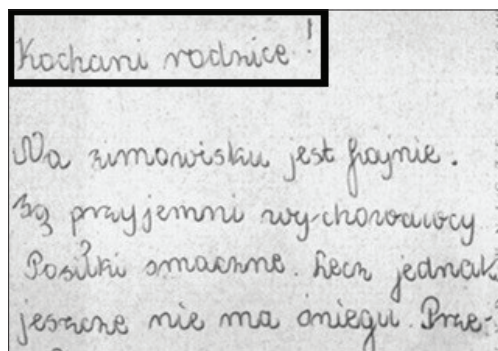 Kochani rodzice!
Na zimowisku jest fajnie.
Są przyjemni wy-chowawcy
Posiłki smaczne. Lecz jednak
jeszcze nie ma śniegu. Prze-